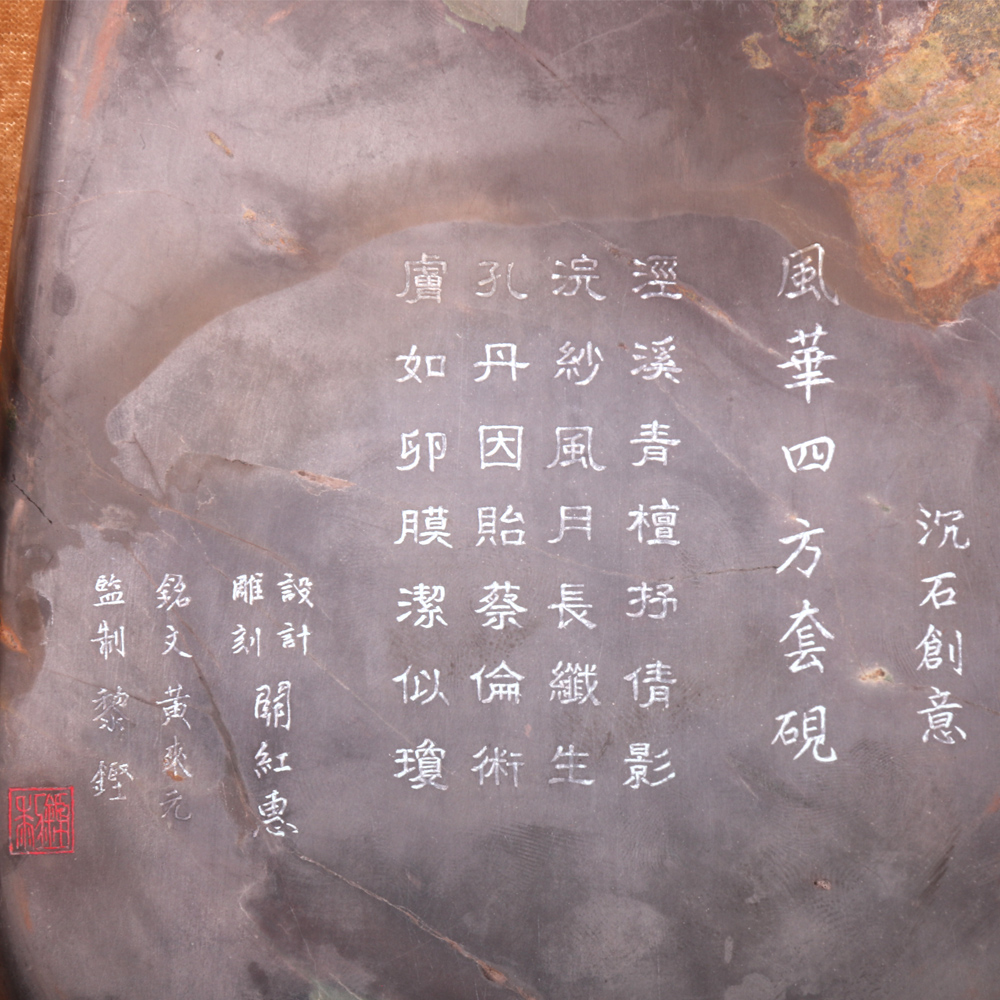 沉石創意
風華四方套硯
涇溪青檀抒倩影
浣紗風月長纖生
孔丹因貽蔡倫術
膚如卵膜潔似瓊
設計
雕刻
關紅惠
銘文 黃來元
監制 黎鏗